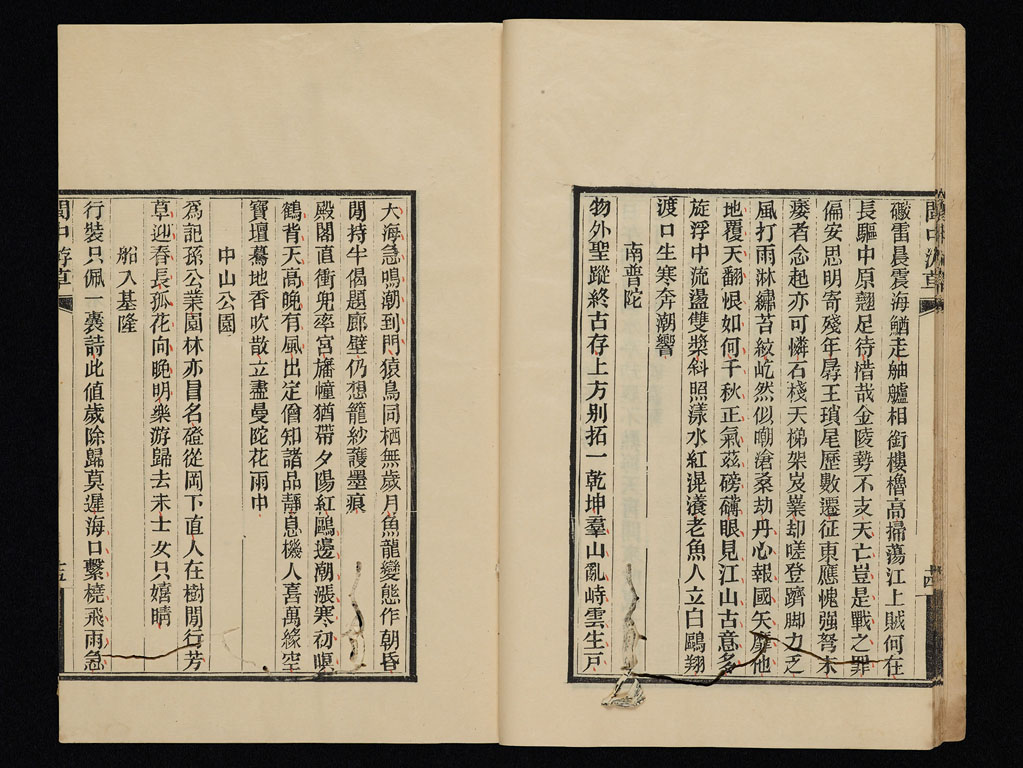 礮雷晨震海鰌走舳艫相銜樓櫓高掃蕩江上賊何在
長驅中原翹足待惜哉金陵勢不支天亡豈是戰之罪
偏安思明寄殘年孱王瑣尾歷數遷征東應愧強弩末
痿者念起亦可憐石棧天梯架岌嶪却嗟登躋脚力乏
風打雨淋繡苔紋屹然似嘲滄桑劫丹心報國矢靡他
地覆天翻恨如何千秋正氣茲磅礴眼見江山古意多
旋浮中流盪雙槳斜照漾水紅滉瀁老魚人立白鷗翔
渡口生寒奔潮響
南普陀
物外聖蹤終古存上方別拓一乾坤羣山亂峙雲生戶
十四
大海急鳴潮到門猿鳥同栖無歲月魚龍變態作朝昏
閒持半偈題廊壁仍想籠紗護墨痕
殿閣直衝兜率宮旛幢猶帶夕陽紅鷗邊潮漲寒初嚥
鶴背天高晚有風出定僧知諸品靜息機人喜萬緣空
寶壇驀地香吹散立盡曼陀花雨中
中山公園
爲記孫公業園林亦冒名磴從岡下直人在樹間行芳
草迎春長孤花向晚明樂游歸去未士女只嬉晴
船入基隆
行裝只佩一囊詩此值歲除歸莫遲海口繫橈飛雨急
閩中游草
十五